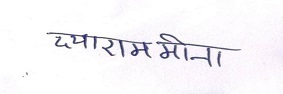 दयाराम मीना